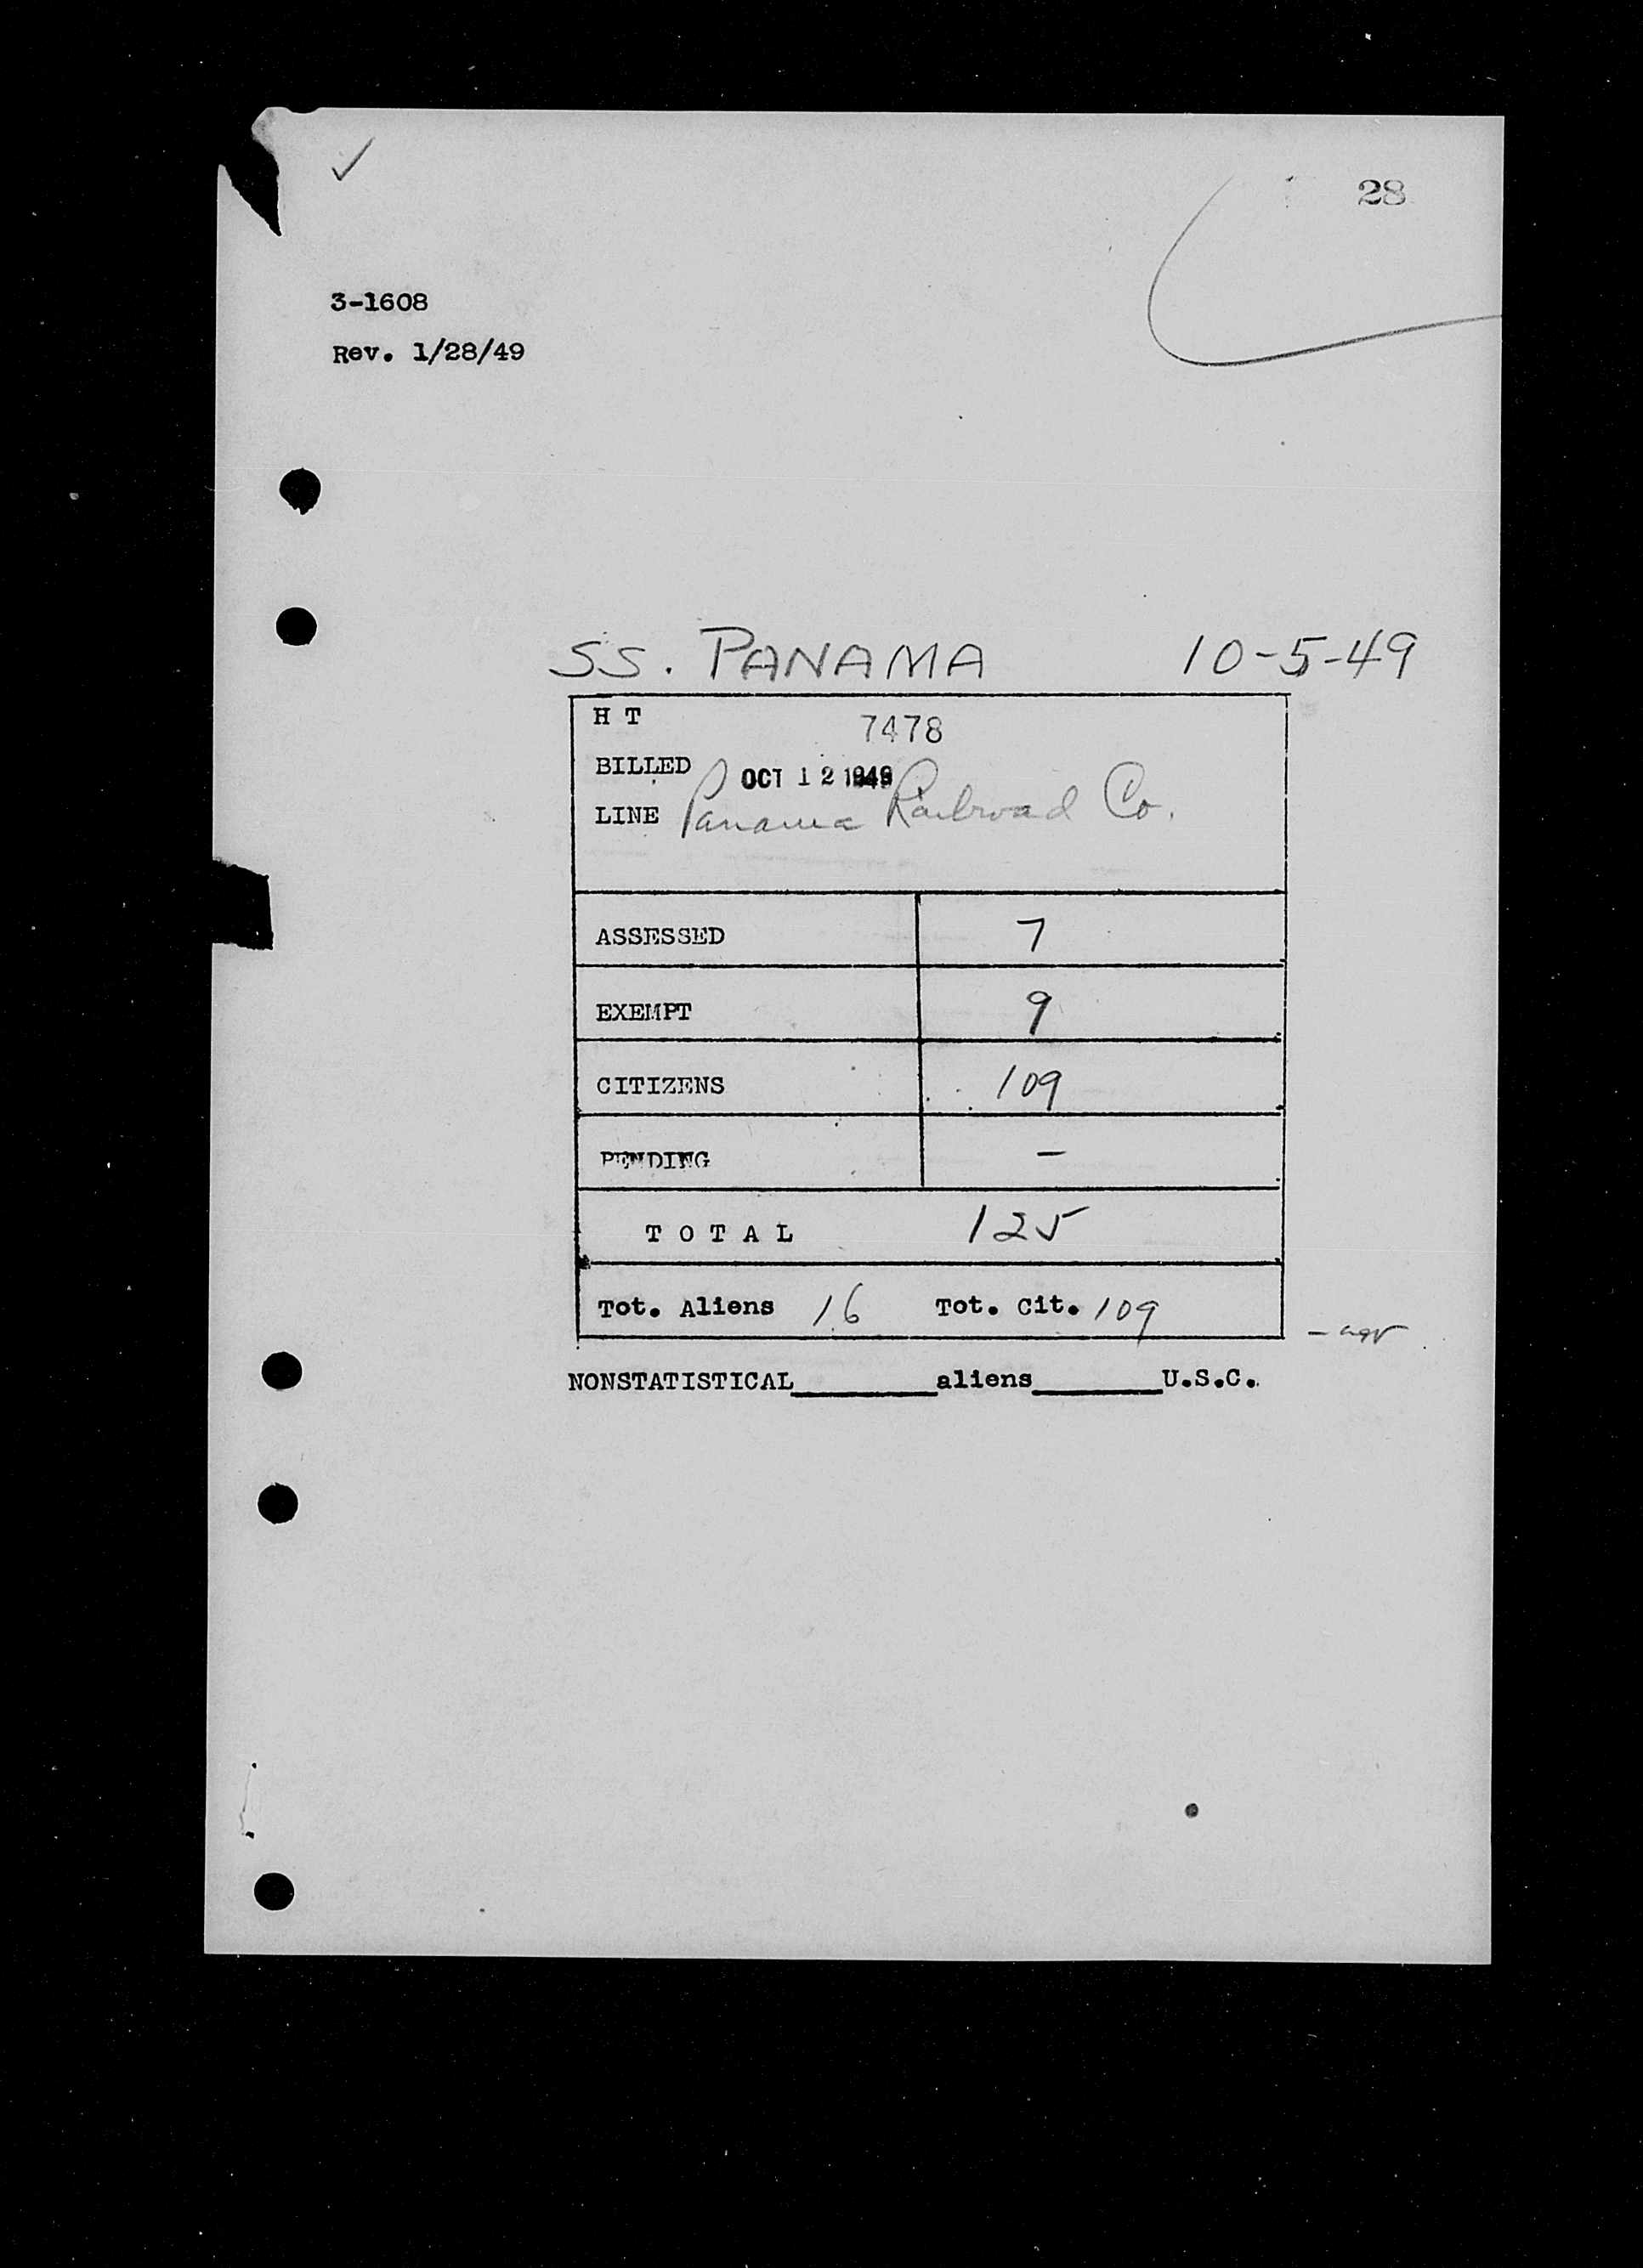 28
3-1608
Rev. 1/28/49
SS. PANAMA 10-5-49
H T 7478
BILLED OCT 12 1949
LINE Panama Railroad Co.
ASSESSED 7
EXEMPT 9
CITIZENS 109
PENDING –
T O T A L 125
Tot. Aliens 16 Tot. Cit. 109
NONSTATISTICAL________aliens_______U.S.C.